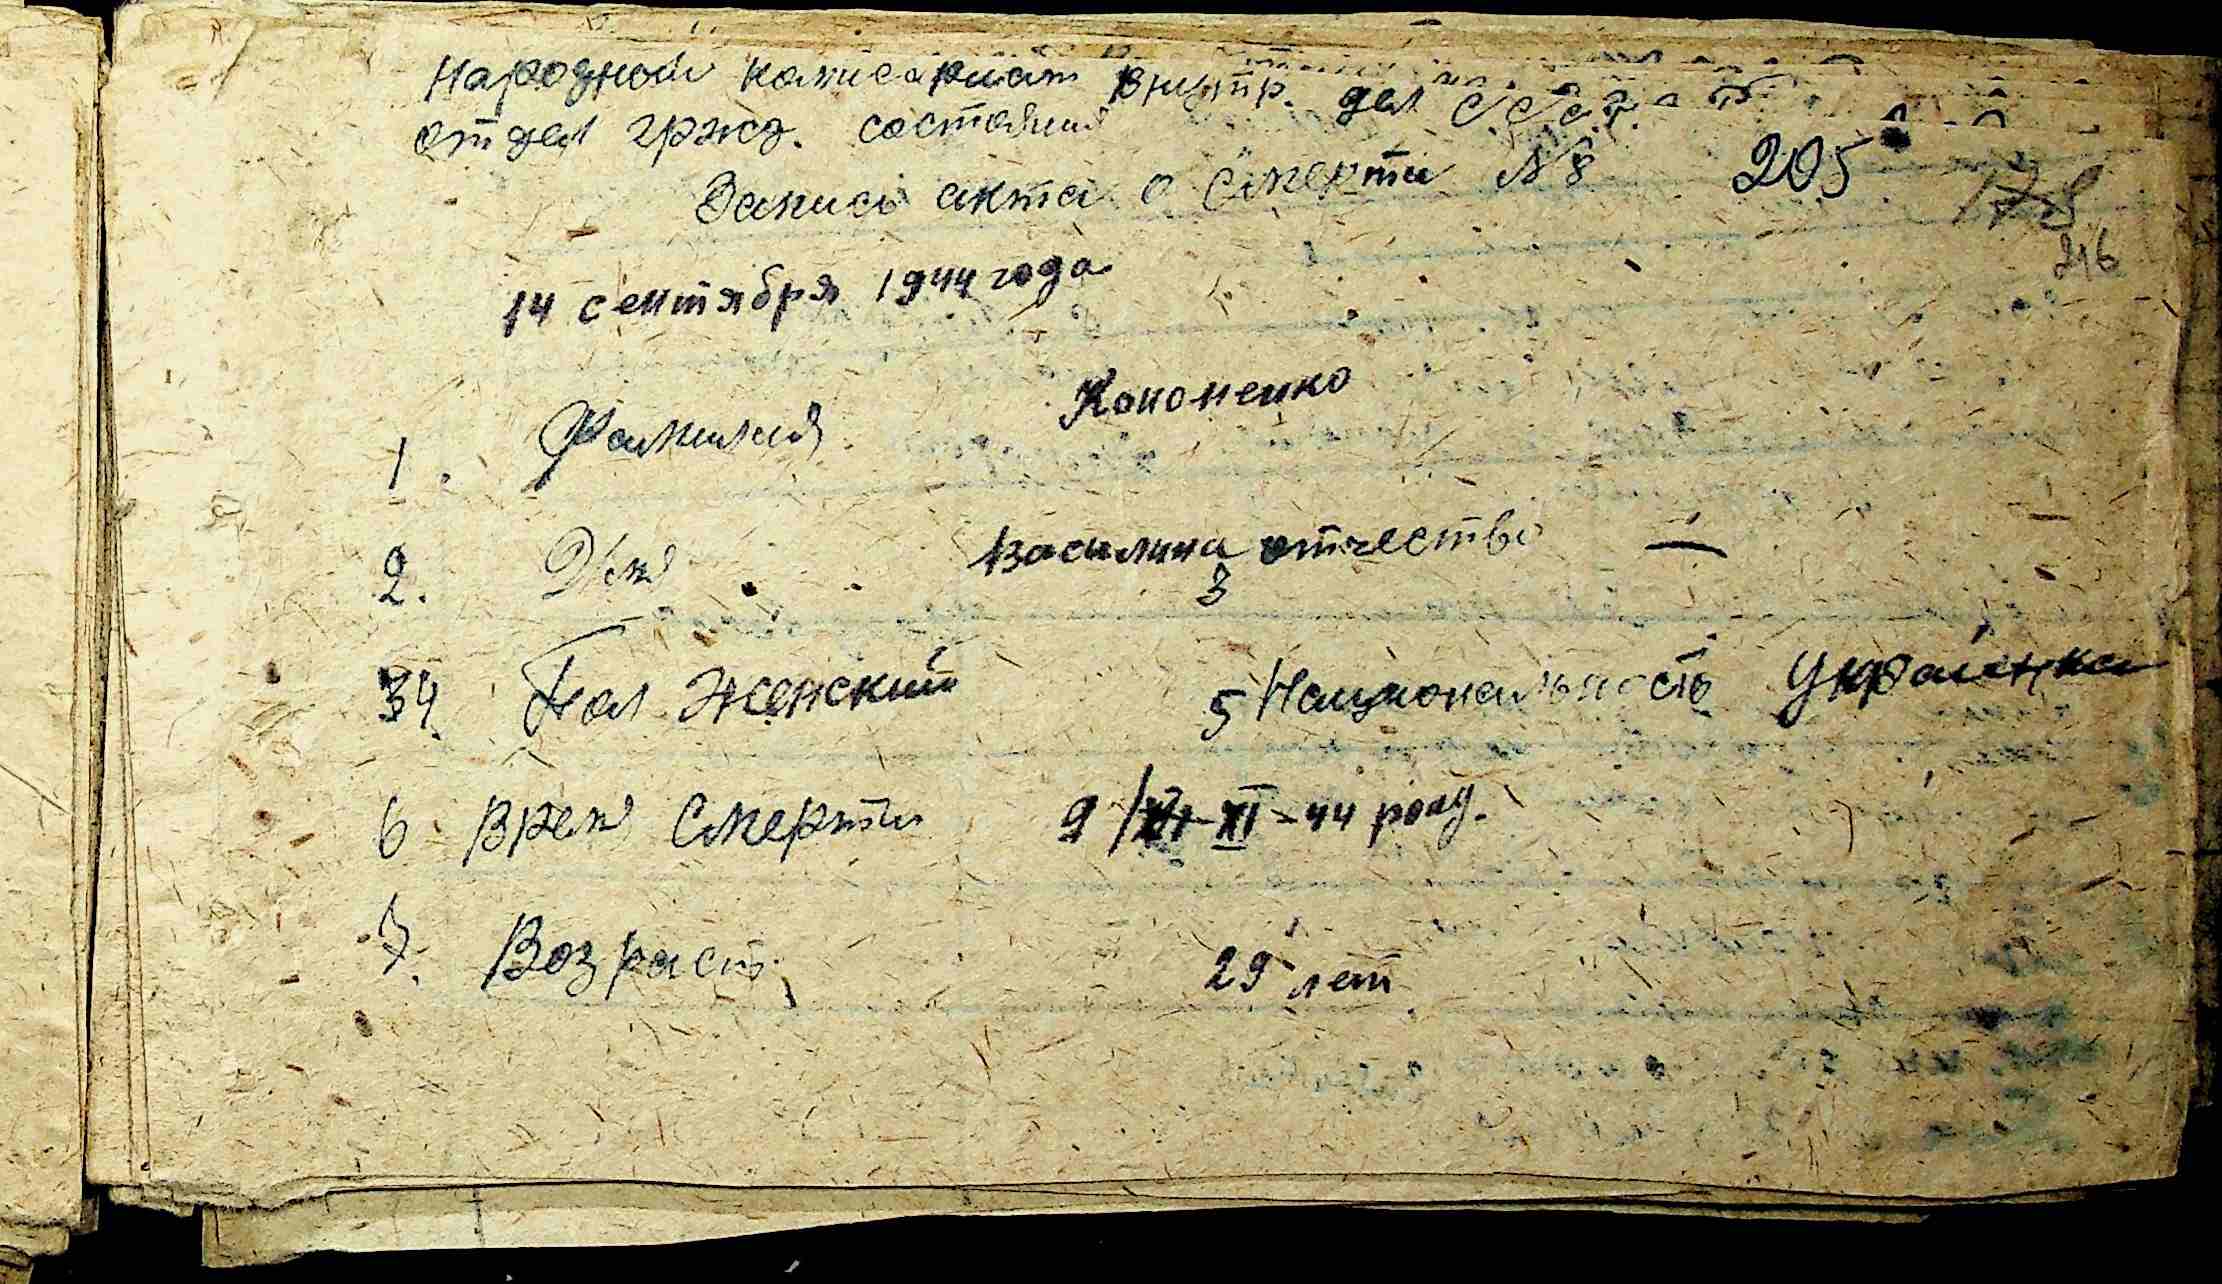 Народной комисариат внутр. дел С.С.С.Р.
отдел гржд. состояния
Запись акта о смерти № 205
178
216
14 сентября 1944 года
1. Фамилия Кононенко
2. Имя Василина 3 отчество —
34. Пол женский 5 Национальность Украінка
6 Врем смерти 9 XI - 44 року.
7. Возраст 29 лет